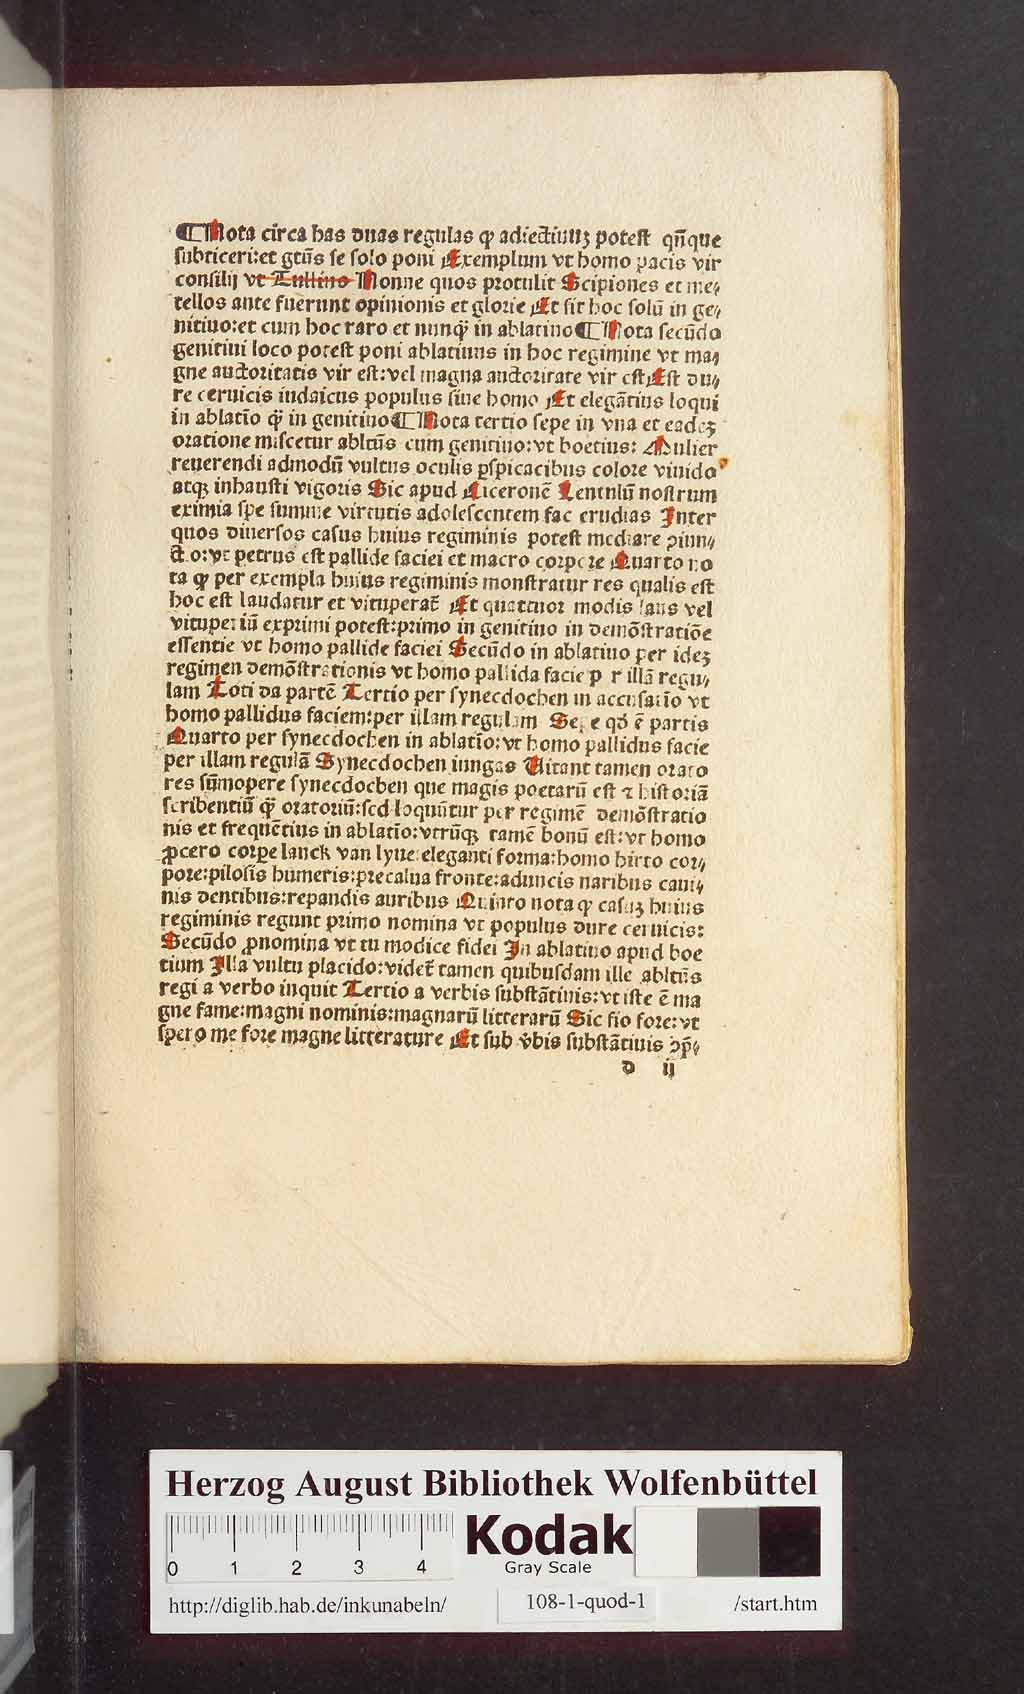 ¶Nota circa has duas regulas ꝙ adiectiuuꝫ potest qn̄que
subticeri:et gtūs se solo poni Exemplum vt homo pacis vir
consilij vt Tullius Nonne quos protulit Scipiones et me⸗
tellos ante fuerunt opinionis et glorie Et sit hoc solū in ge⸗
nitiuo:et cum hoc raro et nunqͣ̄ in ablatiuo¶Nota secūdo
genitiui loco potest poni ablatiuus in hoc regimine vt ma⸗
gne auctoritatis vir est:vel magna auctoritate vir est Est du⸗
re ceruicis iudaicus populus siue homo Et elegātius loqui
in ablatīo qͣ̄ in genitiuo¶Nota tertio sepe in vna et eadeꝫ
oratione miscetur abltūs cum genitiuo:vt boetius: Mulier
reuerendi admodū vultus oculis ꝑspicacibus colore viuido
atqꝫ inhausti vigoris Sic apud Ciceronē Lentulū nostrum
eximia spe summe virtutis adolescentem fac erudias Inter
quos diuersos casus huius regiminis potest mediare ꝯiun⸗
ctio:vt petrus est pallide faciei et macro corpore Quarto no
ta ꝙ per exempla huius regiminis monstratur res qualis est
hoc est laudatur et vituperat̄ Et quattuor modis laus vel
vituperiū exprimi potest:primo in genitiuo in demōstratiōe
essentie vt homo pallide faciei Secūdo in ablatiuo per ideꝫ
regimen demōstrationis vt homo pallida facie p r illā regu⸗
lam Toti da partē Tertio per synecdochen in accusatīo vt
homo pallidus faciem:per illam regulam Sepe qd̄ ē partis
Quarto per synecdochen in ablatīo:vt homo pallidus facie
per illam regulā Synecdochen iungas Uitant tamen orato
res sūmopere synecdochen que magis poetarū est ⁊ historiā
scribentiū qͣ̄ oratoriū:sed loquūtur per regimē demōstratio
nis et frequētius in ablatīo:vtrūqꝫ tamē bonū est:vt homo
ꝓcero corpe lanck van lyue:eleganti forma:homo hirto cor⸗
pore:pilosis humeris:precalua fronte:aduncis naribus cani⸗
nis dentibus:repandis auribus Quinto nota ꝙ casuꝫ huius
regiminis regunt primo nomina vt populus dure ceruicis:
Secūdo ꝓnomina vt tu modice fidei In ablatiuo apud boe
tium Illa vultu placido:videt̄ tamen quibusdam ille abltūs
regi a verbo inquit Tertio a verbis substātiuis:vt iste ē ma
gne fame:magni nominis:magnarū litterarū Sic fio fore:vt
spero me fore magne litterature Et sub v̄bis substātiuis ꝯp̄⸗
d ij
Herzog August Bibliothek Wolfenbüttel
0 1 2 3 4
Kodak
Gray Scale
http://diglib.hab.de/inkunabeln/ 108-1-quod-1 /start.htm